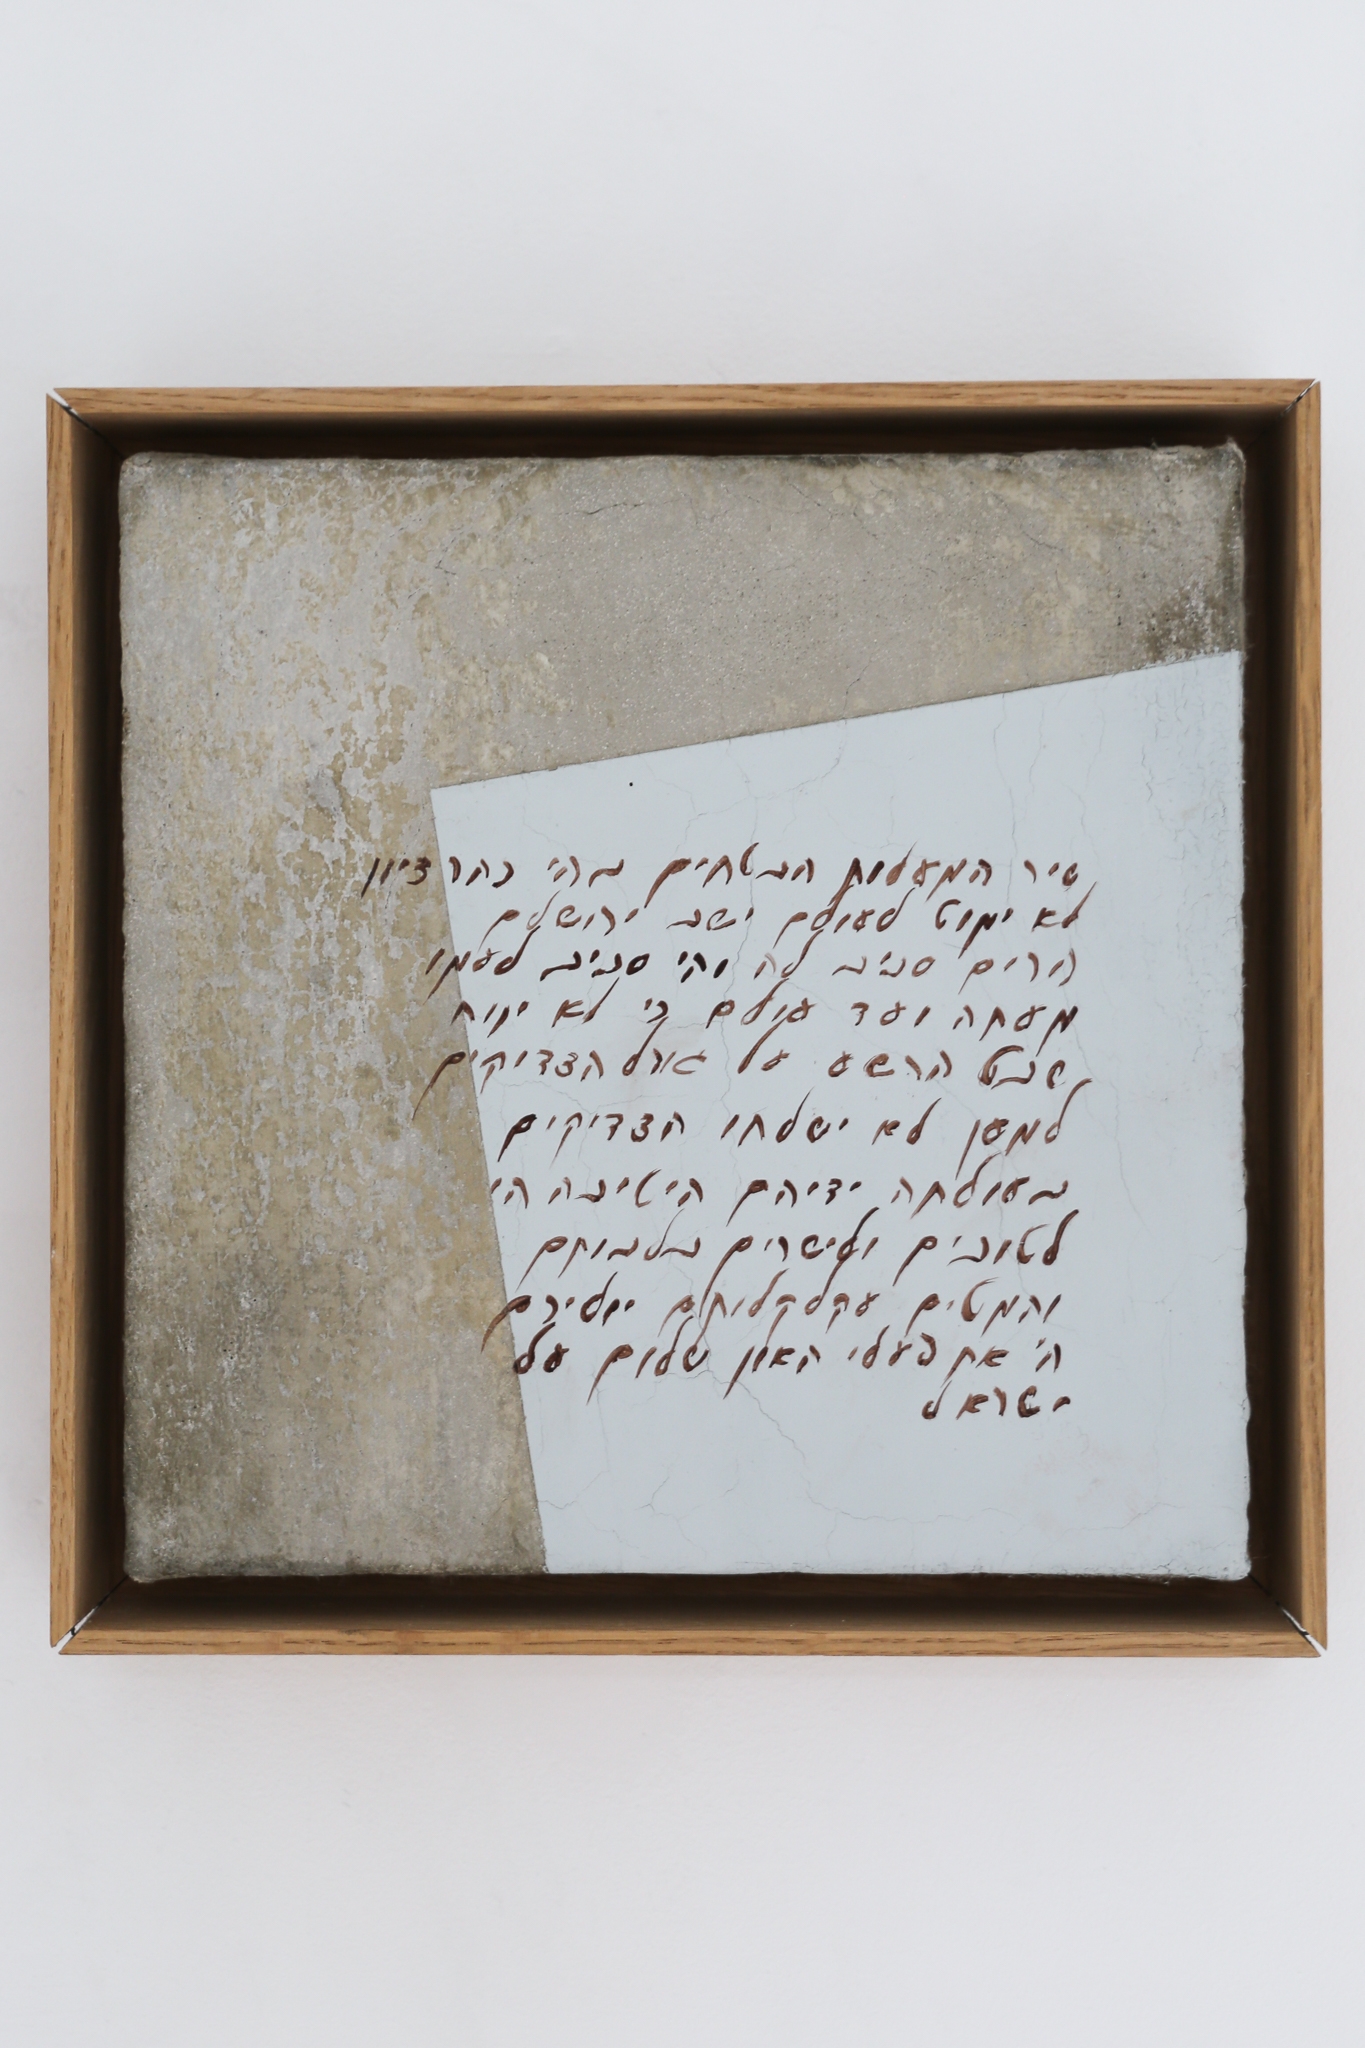 שיר המעלות הבטחים בהי כהר ציון
לא ימוט לעולם ישב ירושלם
הרים סביב לה והי סביב לעמו
מעתה ועד עולם כי לא ינוח
שבט הרשע על גורל הצדיקים
למען לא ישלחו הצדיקים
בעולתה ידיהם היטיבה הי
לטובים ולישרים בלבותם
והמטים עקלקלותם יוליכם
ה' את פעלי האון שלום על
ישראל